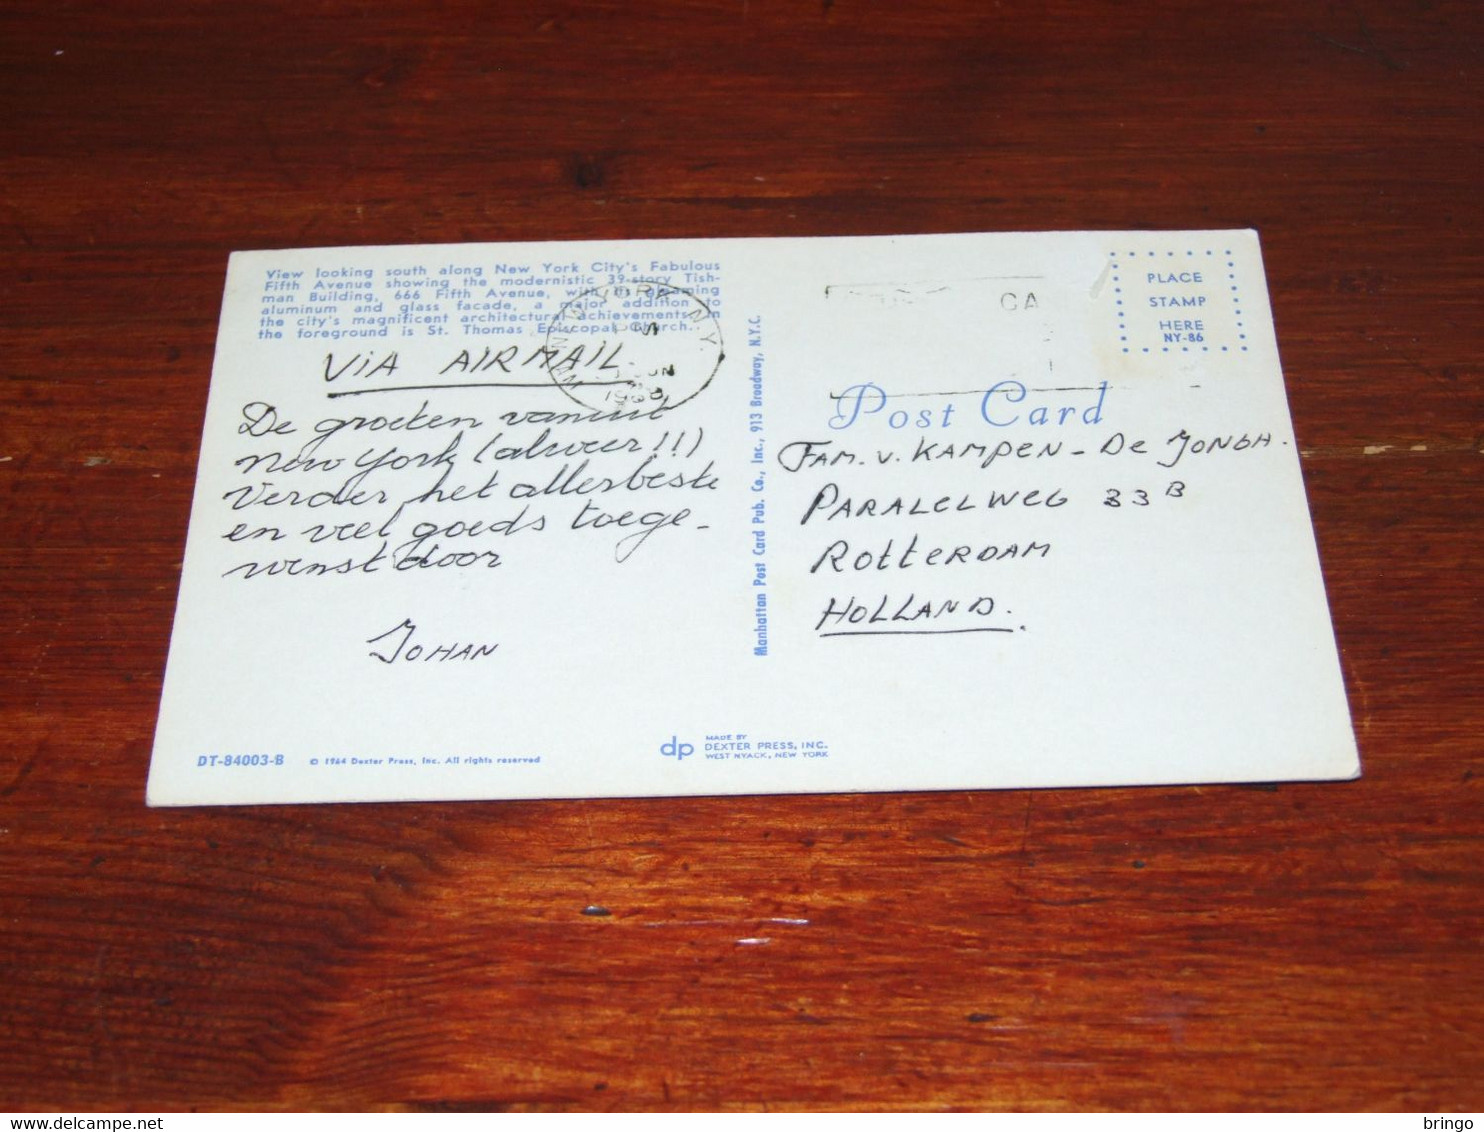 View looking south along New York City's Fabulous
Fifth Avenue showing the modernistic 39-story Tish-
man Building, 666 Fifth Avenue, with its gleaming
aluminum and glass facade, a major addition to
the city's magnificent architectural achievements. In
the foreground is St. Thomas Episcopal Church.
VIA AIRMAIL
De groeten vanuit
New York (alweer!!)
Verder het allerbeste
en veel goeds toege-
wenst door
JOHAN
DT-84003-B © 1964 Dexter Press, Inc. All rights reserved
NEW YORK, N.Y.
Manhattan Post Card Pub. Co., Inc., 913 Broadway, N.Y.C.
dp MADE BY
DEXTER PRESS, INC.
WEST NYACK, NEW YORK
CA
PLACE
STAMP
HERE
NY-86
Post Card
FAM. v. KAMPEN - De JONGH.
PARALELWEG 33B
ROTTERDAM
HOLLAND.
delcampe.net
bringo